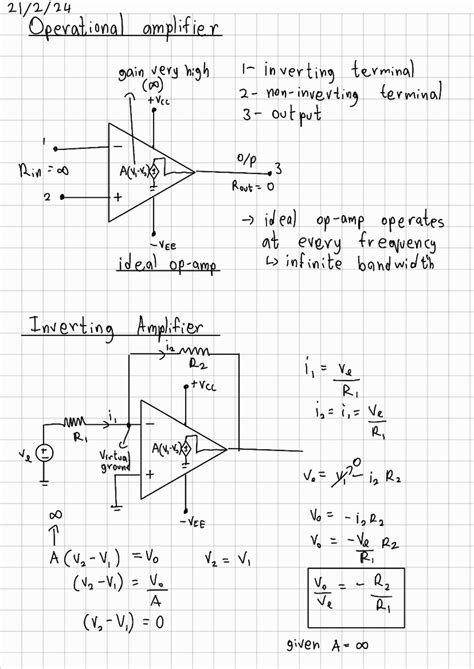 21/2/24
Operational amplifier
gain very high
(∞)
+Vcc
1- inverting terminal
2- non-inverting terminal
3- output
1
−
Rin = ∞
A(V₁-V₂)
O/P
3
Rout = 0
2
+
-VEE
ideal op-amp
→ ideal op-amp operates
at every frequency
↳ infinite bandwidth
Inverting Amplifier
i₂
R₂
+Vcc
i₁
R₁
−
A(V₁-V₂)
Virtual
ground
+
-VEE
i₁ = Ve/R₁
i₂ = i₁ = Ve/R₁
V₀ = V₁ 0 - i₂ R₂
V₀ = -i₂ R₂
V₀ = -Ve/R₁ R₂
V₀/Ve = - R₂/R₁
given A = ∞
∞
A (V₂ - V₁) = V₀
V₂ = V₁
(V₂ - V₁) = V₀/A
(V₂ - V₁) = 0